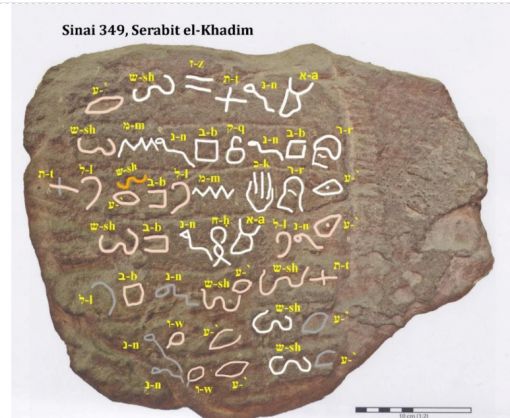 Sinai 349, Serabit el-Khadim
ע-` ש-sh ז-z ת-t נ-n א-a
ש-sh מ-m נ-n ב-b ק-q נ-n ב-b ר-r
ת-t ל-l ע-` ש-sh ב-b ל-l מ-m כ-k ר-r ע-`
ש-sh ב-b נ-n ח-h א-a ל-l נ-n ע-`
ל-l ב-b נ-n ש-sh ע-` ש-sh ת-t
נ-n ו-w ע-` ש-sh ע-`
נ-n ו-w ע-` ש-sh ע-`
10 cm (1:2)